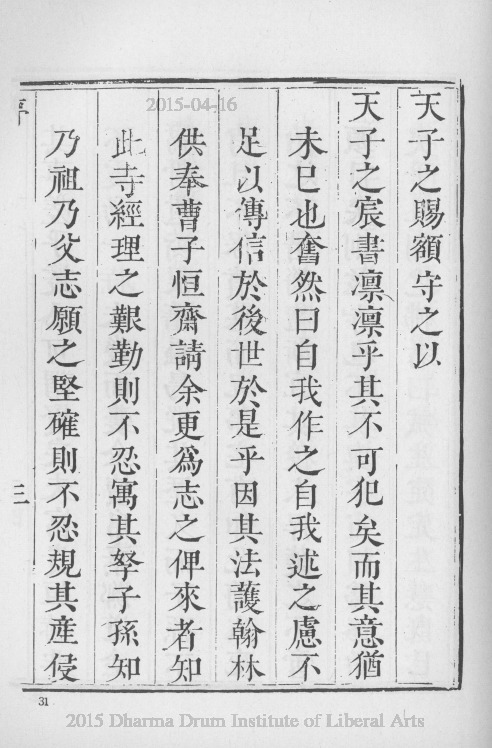 天子之賜額守之以
天子之宸書凛凛乎其不可犯矣而其意猶
未已也奮然曰自我作之自我述之慮不
足以傳信於後世於是乎因其法護翰林
供奉曹子恒齋請余更爲志之俾來者知
此寺經理之艱勤則不忍寓其孥子孫知
乃祖乃父志願之堅確則不忍規其産侵
亭
三
31
2015-04-16
2015 Dharma Drum Institute of Liberal Arts